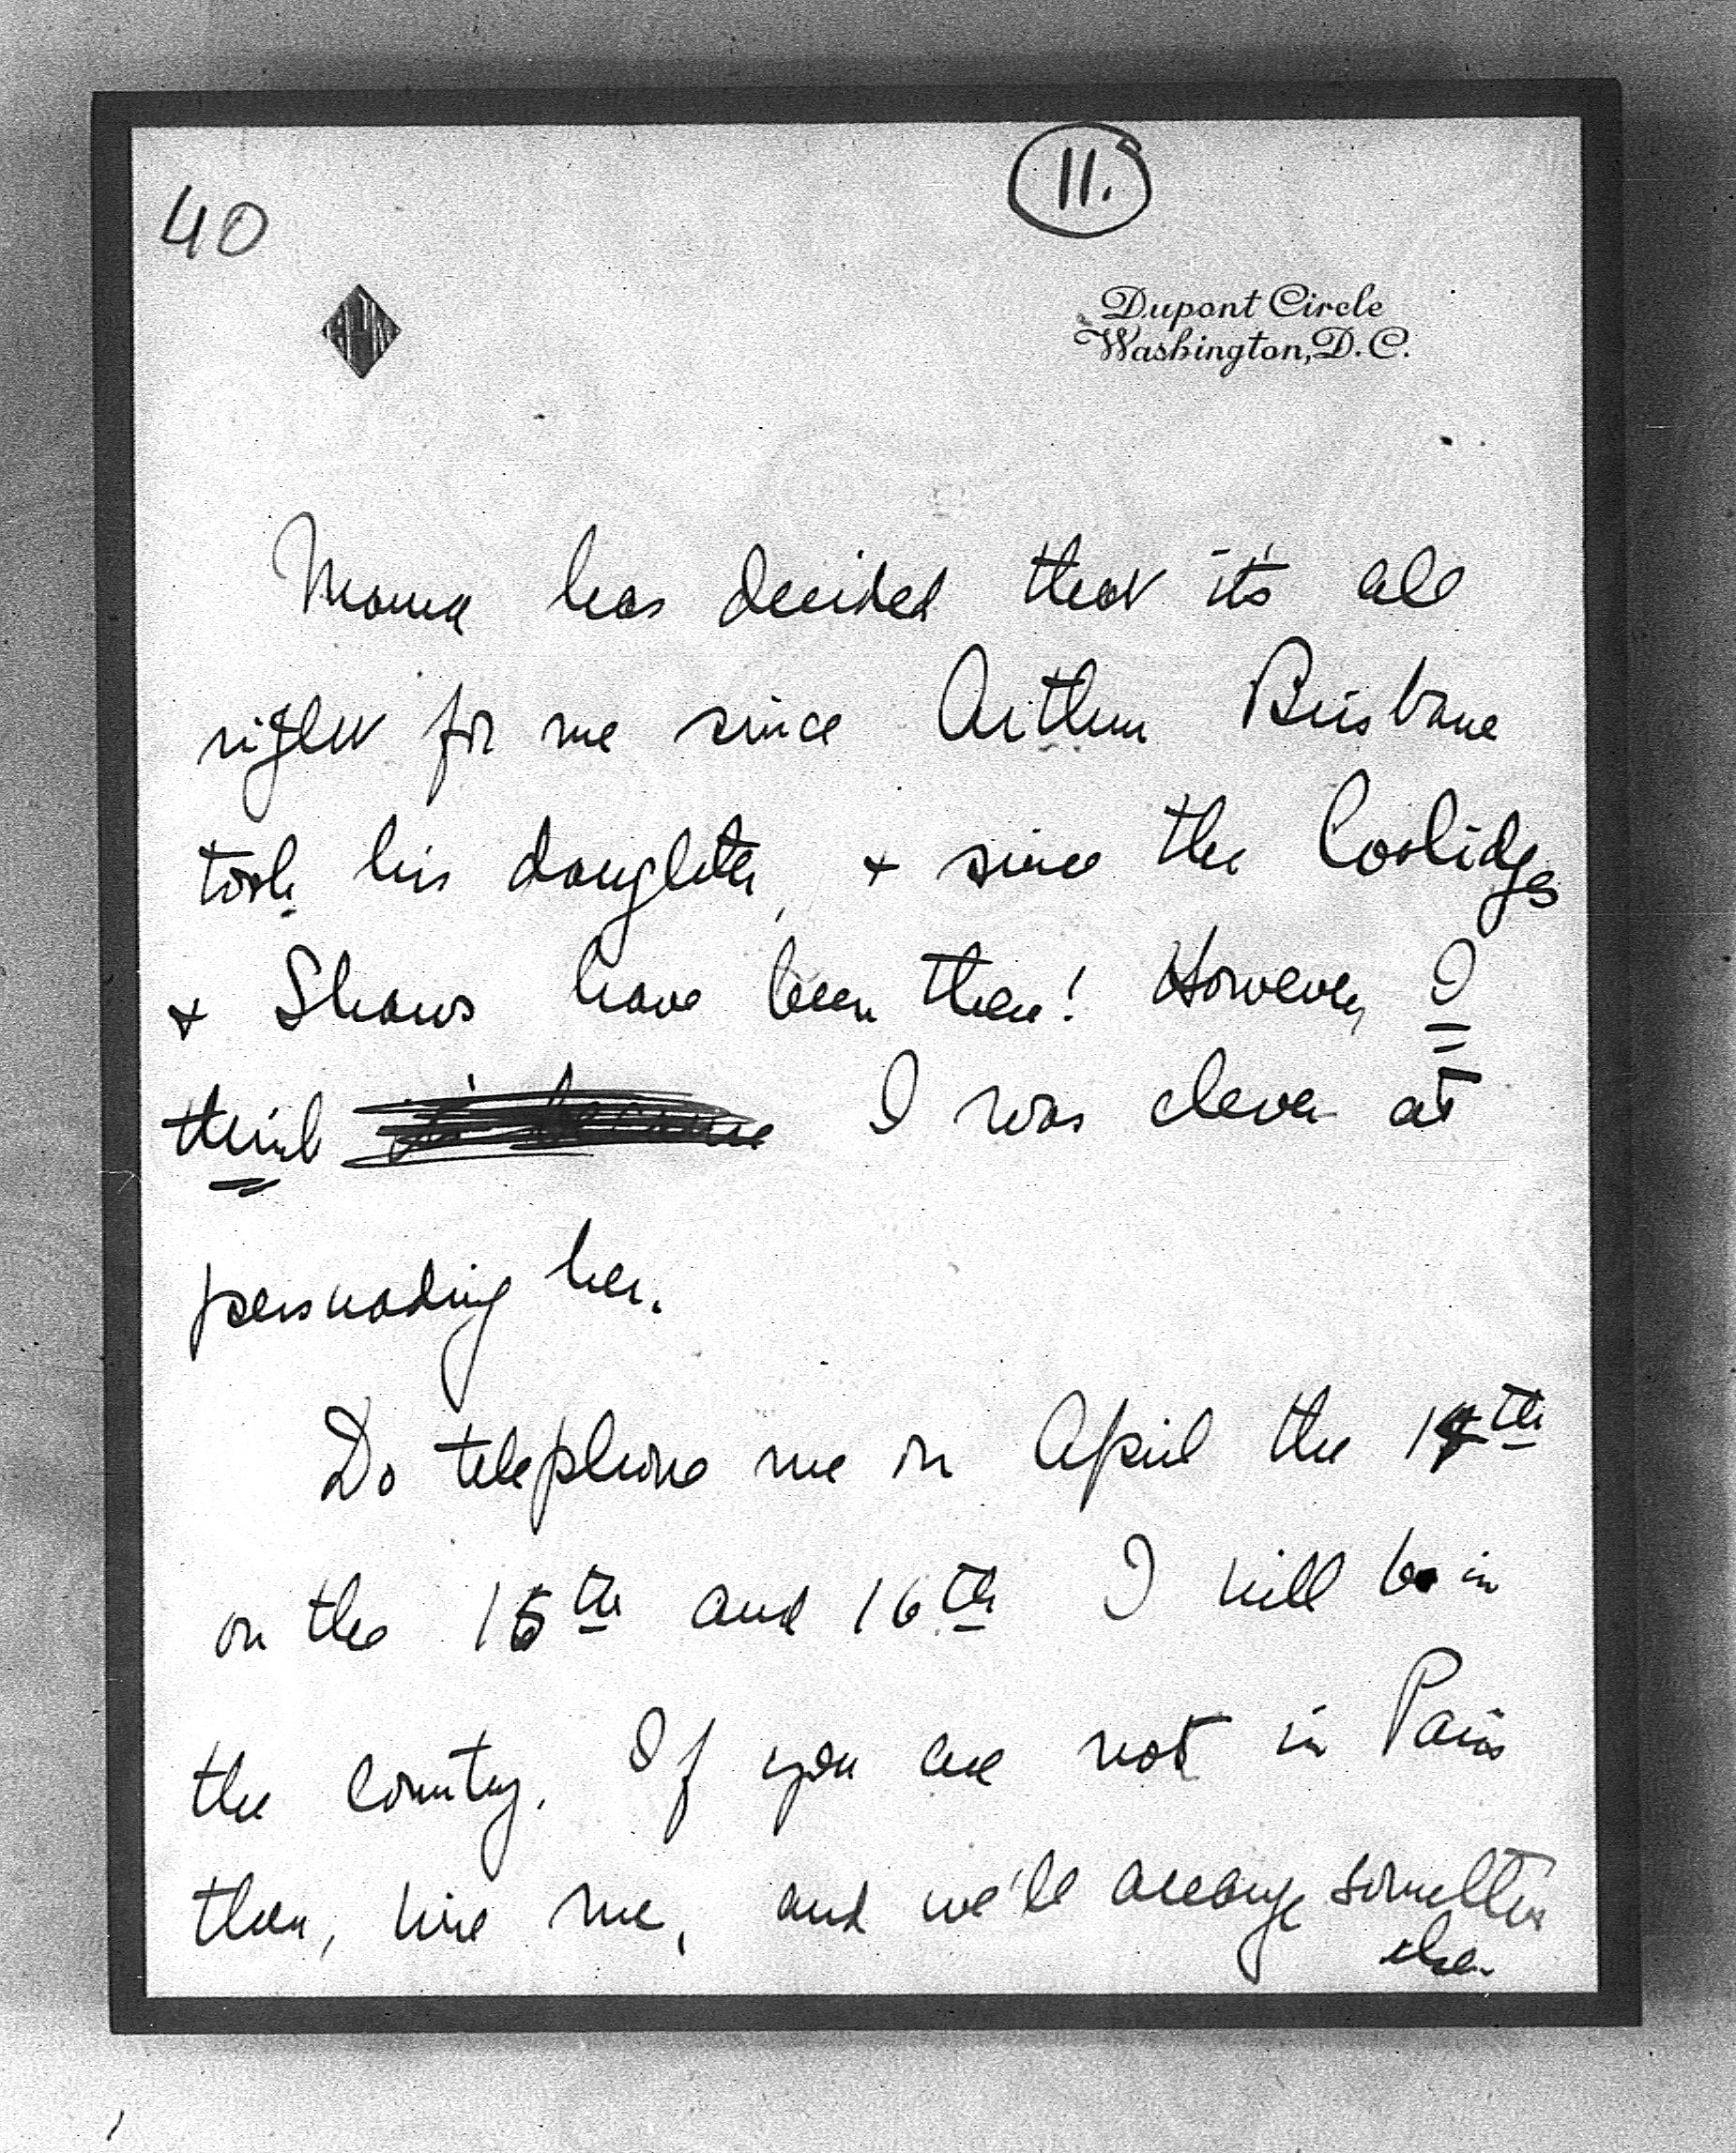 40
11.
Dupont Circle
Washington, D.C.
Mama has decided that it's all
right for me since Arthur Brisbane
took his daughter, + since the Coolidges
+ Shaws have been there! However, I
think I was clever at
persuading her.
Do telephone me on April the 14th
on the 15th and 16th I will be in
the country. If you are not in Paris
then, wire me, and we'll arrange something
else.